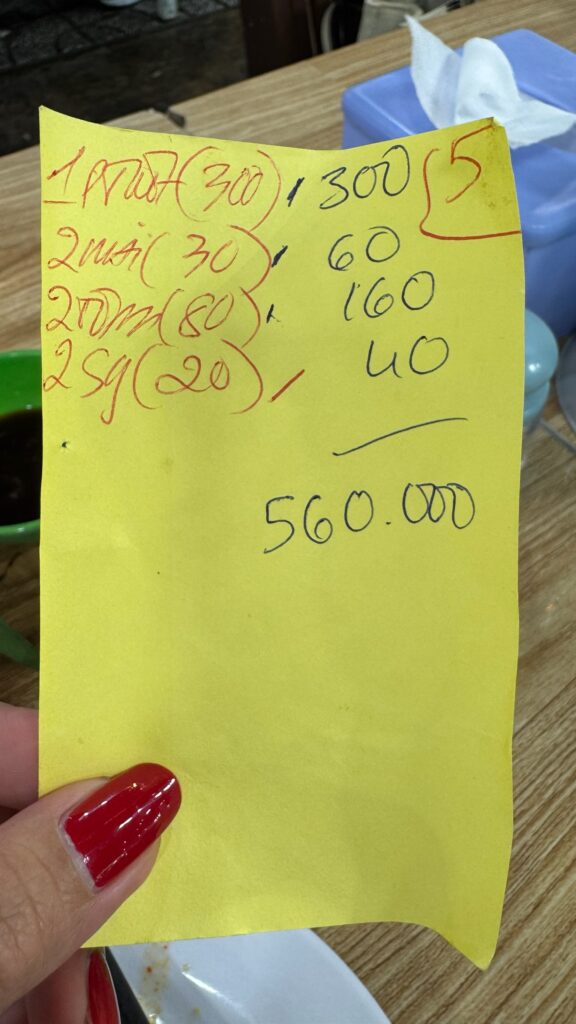 (300) 300 5
2 mì (30) 60
2 tôm (80) 160
2 Sg (20) 40
560.000